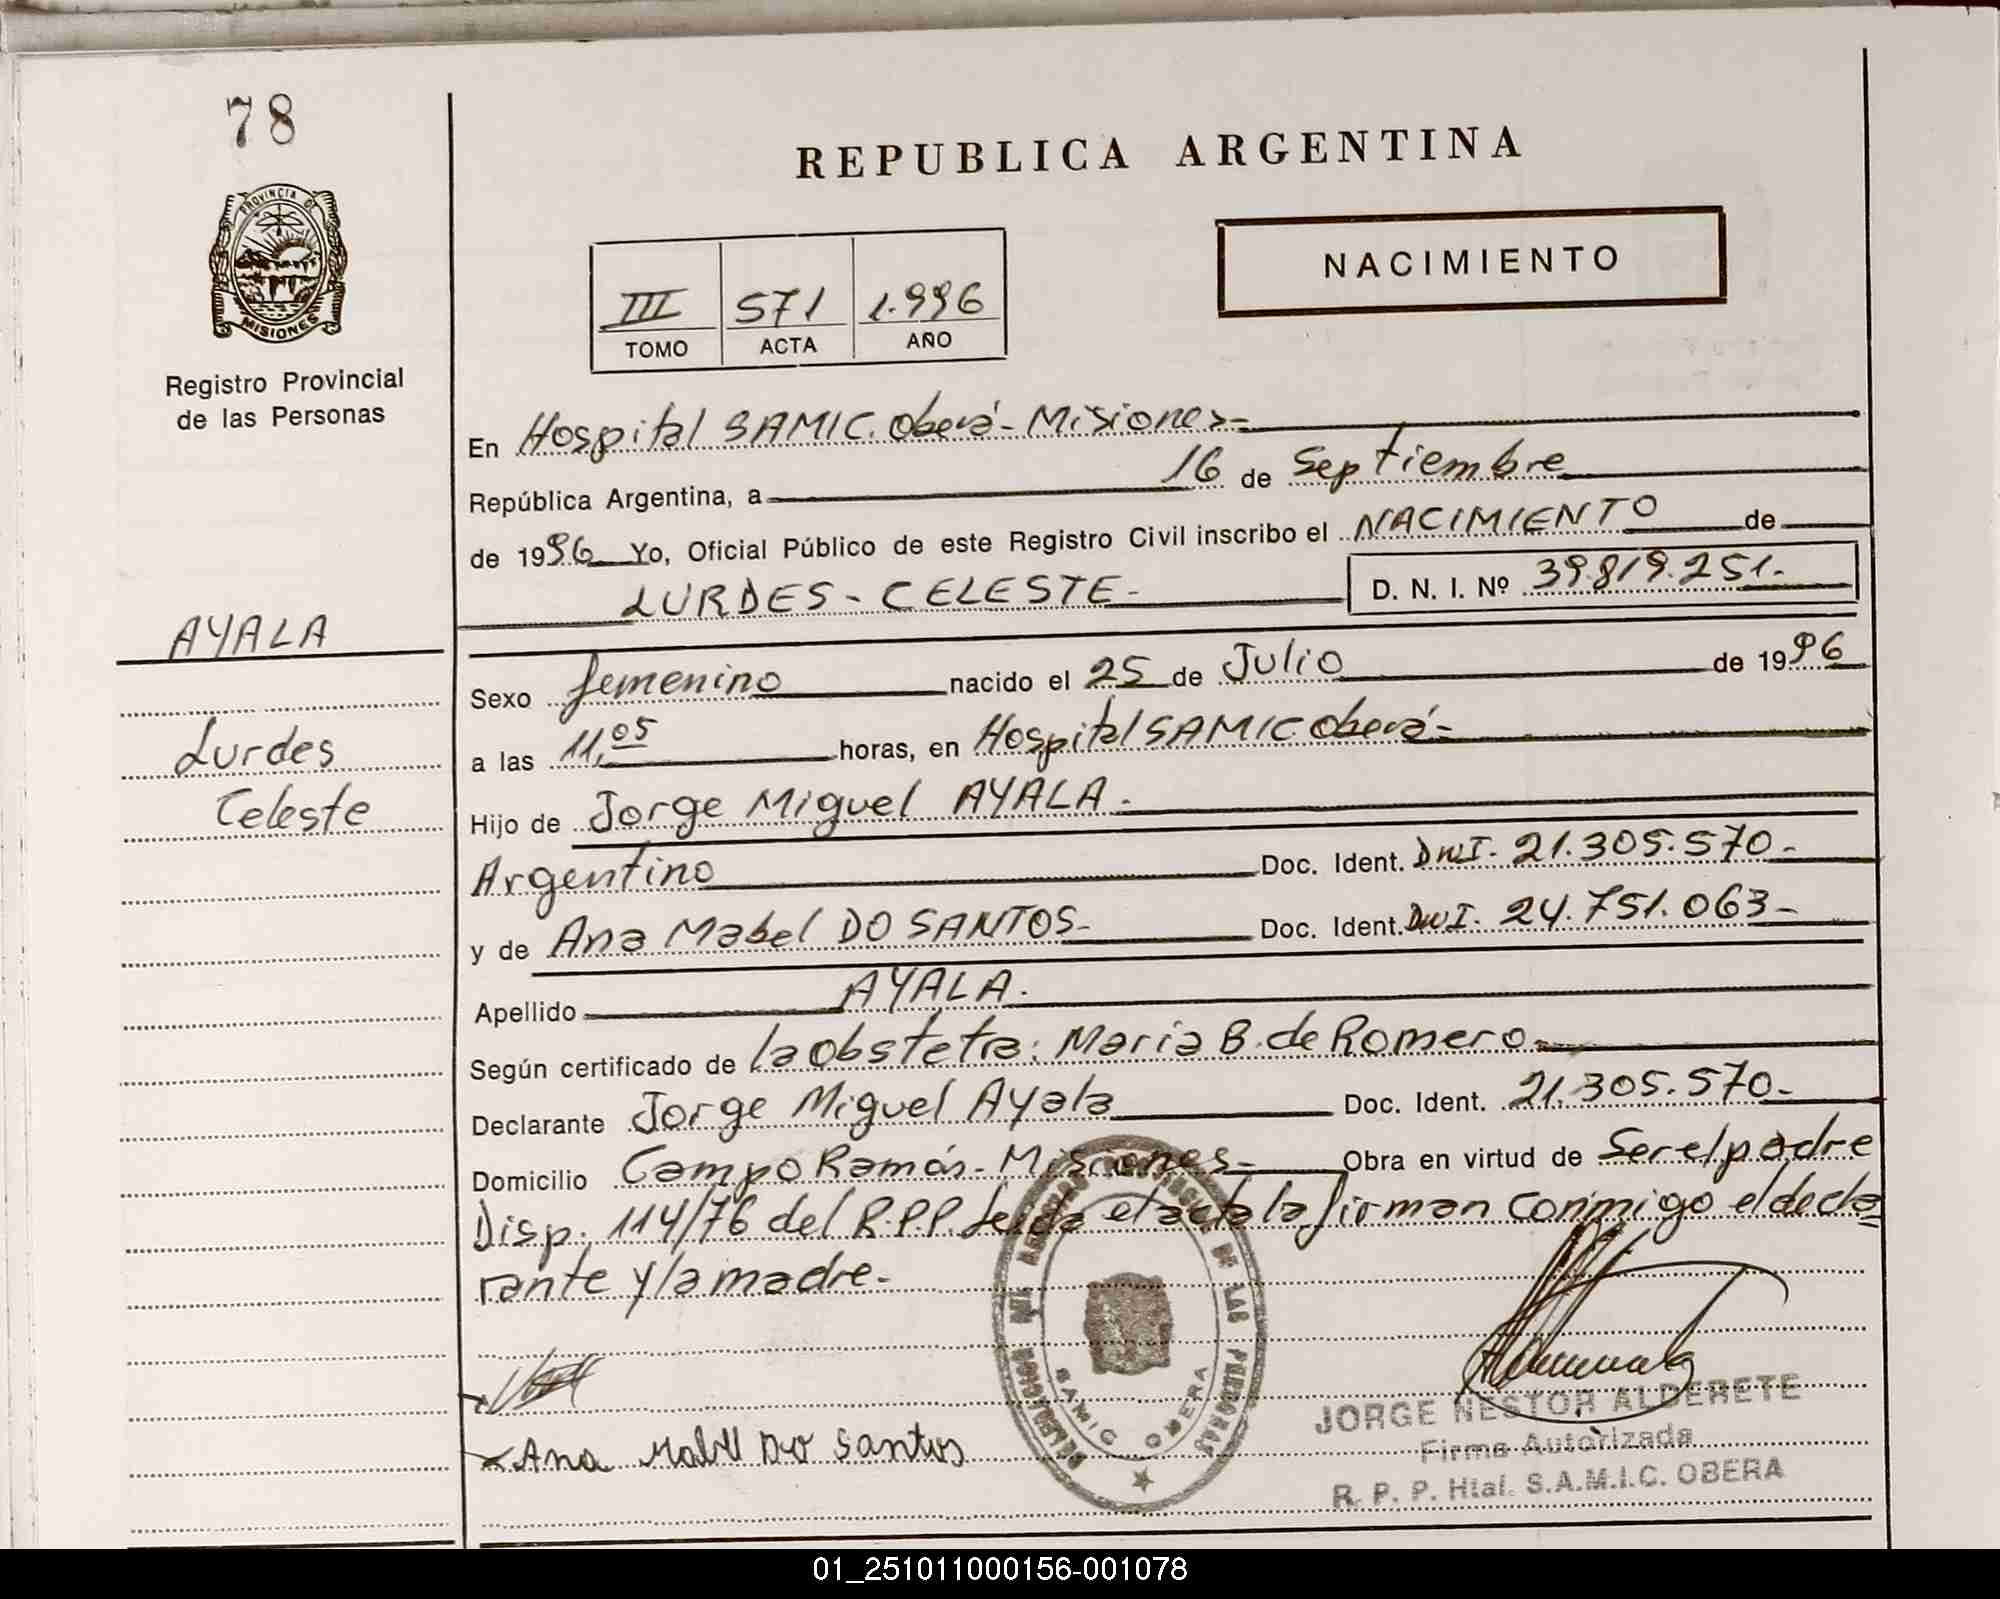 78
REPUBLICA ARGENTINA
PROVINCIA DE
MISIONES
NACIMIENTO
III 571 1.996
TOMO ACTA AÑO
Registro Provincial
de las Personas
En Hospital SAMIC. Oberá - Misiones=
República Argentina, a 16 de Septiembre
de 1996 Yo, Oficial Público de este Registro Civil inscribo el NACIMIENTO de
LURDES - CELESTE - D. N. I. Nº 39.819.251.-
AYALA
Lurdes
Celeste
Sexo femenino nacido el 25 de Julio de 1996
a las 11,05 horas, en Hospital SAMIC Oberá=
Hijo de Jorge Miguel AYALA.-
Argentino Doc. Ident. DNI. 21.305.570.-
y de Ana Mabel DO SANTOS- Doc. Ident. DNI. 24.751.063-
Apellido AYALA.
Según certificado de la obstetra: Maria B. de Romero
Declarante Jorge Miguel Ayala Doc. Ident. 21.305.570.-
Domicilio Campo Ramón - Misiones- Obra en virtud de Ser el padre
Disp. 114/76 del R.P.P. Leida el acta la firman conmigo el decla
rante y la madre.-
Ana Mabell Do Santos
DELEGACION DEL REGISTRO PROVINCIAL DE LAS PERSONAS
SAMIC OBERA
JORGE NESTOR ALDERETE
Firma Autorizada
R. P. P. Htal. S.A.M.I.C. OBERA
01_251011000156-001078